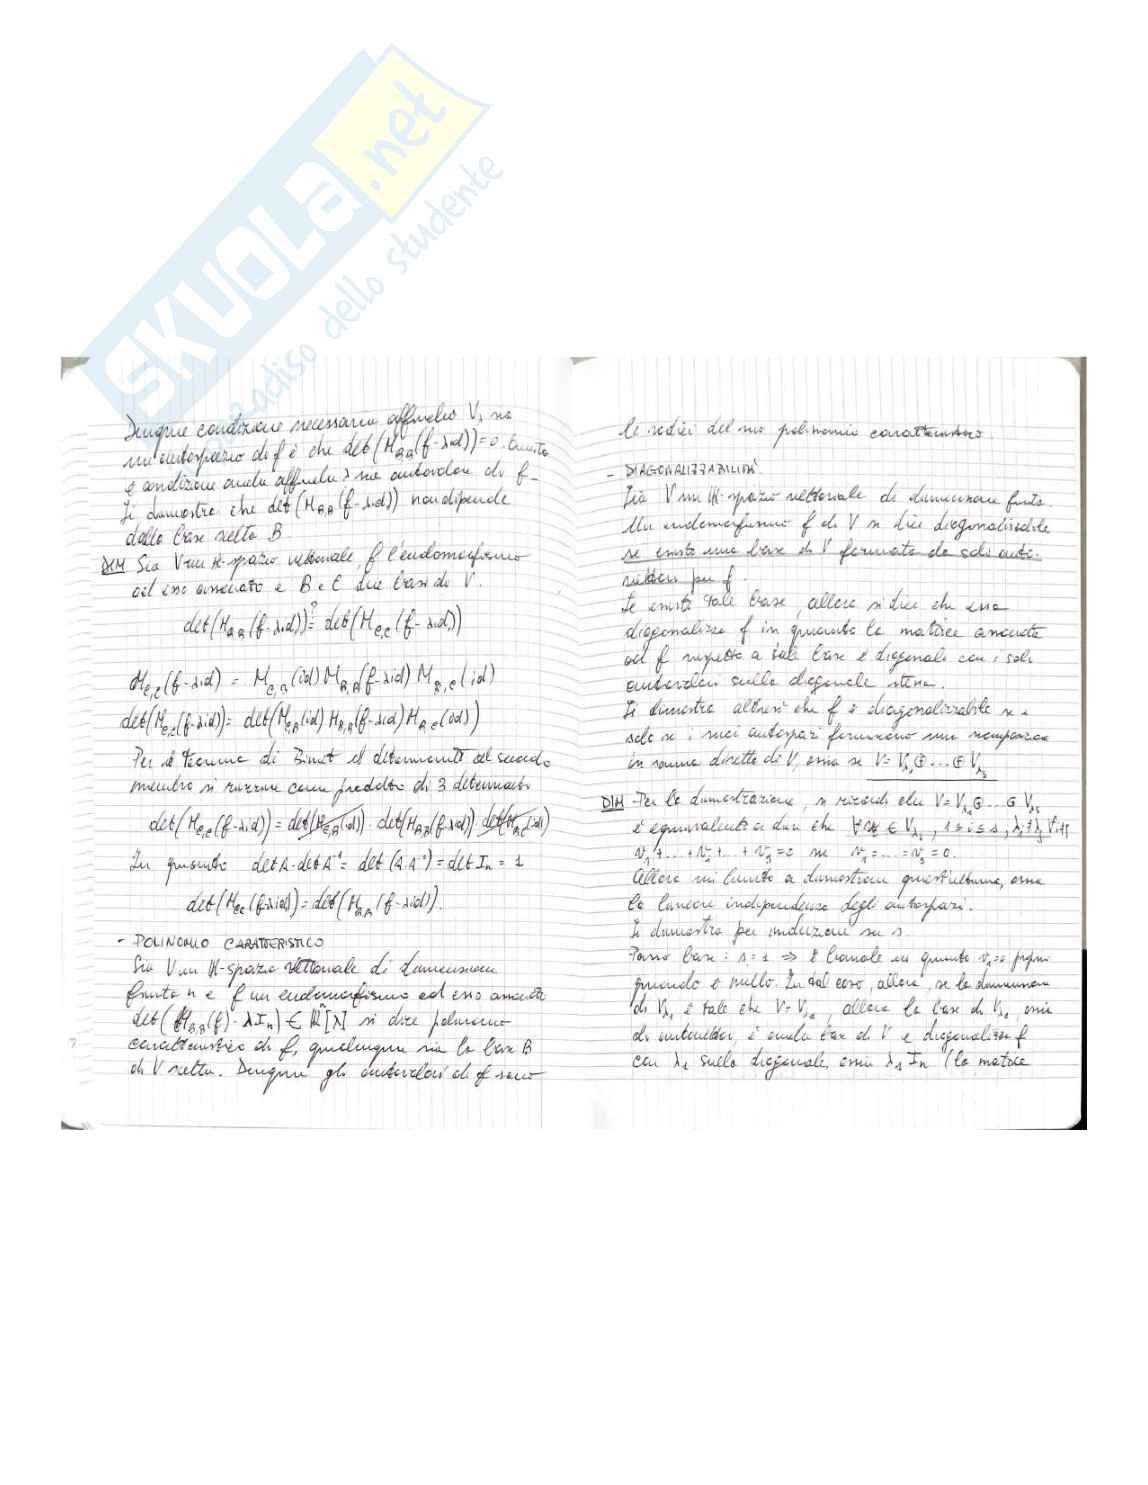 SKUOLA.net
paradiso dello studente
Dunque condizione necessaria affinché Vλ sia
un autospazio di f è che det(M_B,B(f-λid))=0. Questa
è condizione anche affinché λ sia autovalore di f.
Si dimostra che det(M_B,B(f-λid)) non dipende
dalla base scelta B
DIM Sia V un K-spazio vettoriale, f l'endomorfismo
ad esso associato e B e C due basi di V.
det(M_B,B(f-λid)) ?= det(M_C,C(f-λid))
M_C,C(f-λid) = M_C,B(id) M_B,B(f-λid) M_B,C(id)
det(M_C,C(f-λid)) = det(M_C,B(id) M_B,B(f-λid) M_B,C(id))
Per il teorema di Binet il determinante al secondo
membro si riscrive come prodotto di 3 determinanti
det(M_C,C(f-λid)) = det(M_C,B(id)) · det(M_B,B(f-λid)) det(M_B,C(id))
In quanto det A · det A⁻¹ = det(A·A⁻¹) = det Iₙ = 1
det(M_C,C(f-λid)) = det(M_B,B(f-λid)).
- POLINOMIO CARATTERISTICO
Sia V un K-spazio vettoriale di dimensione
finita n e f un endomorfismo ad esso associato
det(M_B,B(f) - λIₙ) ∈ [λ] si dice polinomio
caratteristico di f, qualunque sia la base B
di V scelta. Dunque gli autovalori di f sono
le radici del suo polinomio caratteristico.
- DIAGONALIZZABILITÀ
Sia V un K-spazio vettoriale di dimensione finita.
Un endomorfismo f di V si dice diagonalizzabile
se esiste una base di V formata da soli auto-
vettori per f.
Se esiste tale base, allora si dice che essa
diagonalizza f in quanto la matrice associata
ad f rispetto a tale base è diagonale con i soli
autovalori sulla diagonale stessa.
Si dimostra altresì che f è diagonalizzabile se e
solo se i suoi autospazi formano una scomposizione
in somma diretta di V, ossia se V = Vλ₁ ⊕ ... ⊕ Vλₛ
DIM - Per la dimostrazione, si ricordi che V = Vλ₁ ⊕ ... ⊕ Vλₛ
è equivalente a dire che ∀ vᵢ ∈ Vλᵢ, 1 ≤ i ≤ s, λᵢ ≠ λⱼ ∀ i≠j
v₁ + ... + vᵢ + ... + vₛ = 0 se v₁ = ... = vₛ = 0.
Allora mi limito a dimostrare quest'ultima, ossia
la lineare indipendenza degli autospazi.
Si dimostra per induzione su s.
Passo base: s = 1 ⇒ è banale in quanto v₁=0 proprio
quando è nullo. In tal caso, allora, se la dimensione
di Vλ₁ è tale che V = Vλ₁, allora la base di Vλ₁, ossia
di autovettori, è anche base di V e diagonalizza f
con λ₁ sulla diagonale, ossia λ₁ Iₙ (la matrice